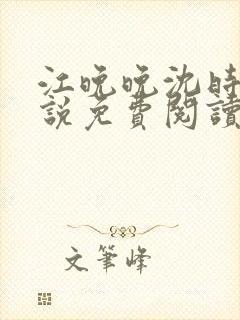 江晚晚沈時
說免費閱讀
文筆峰